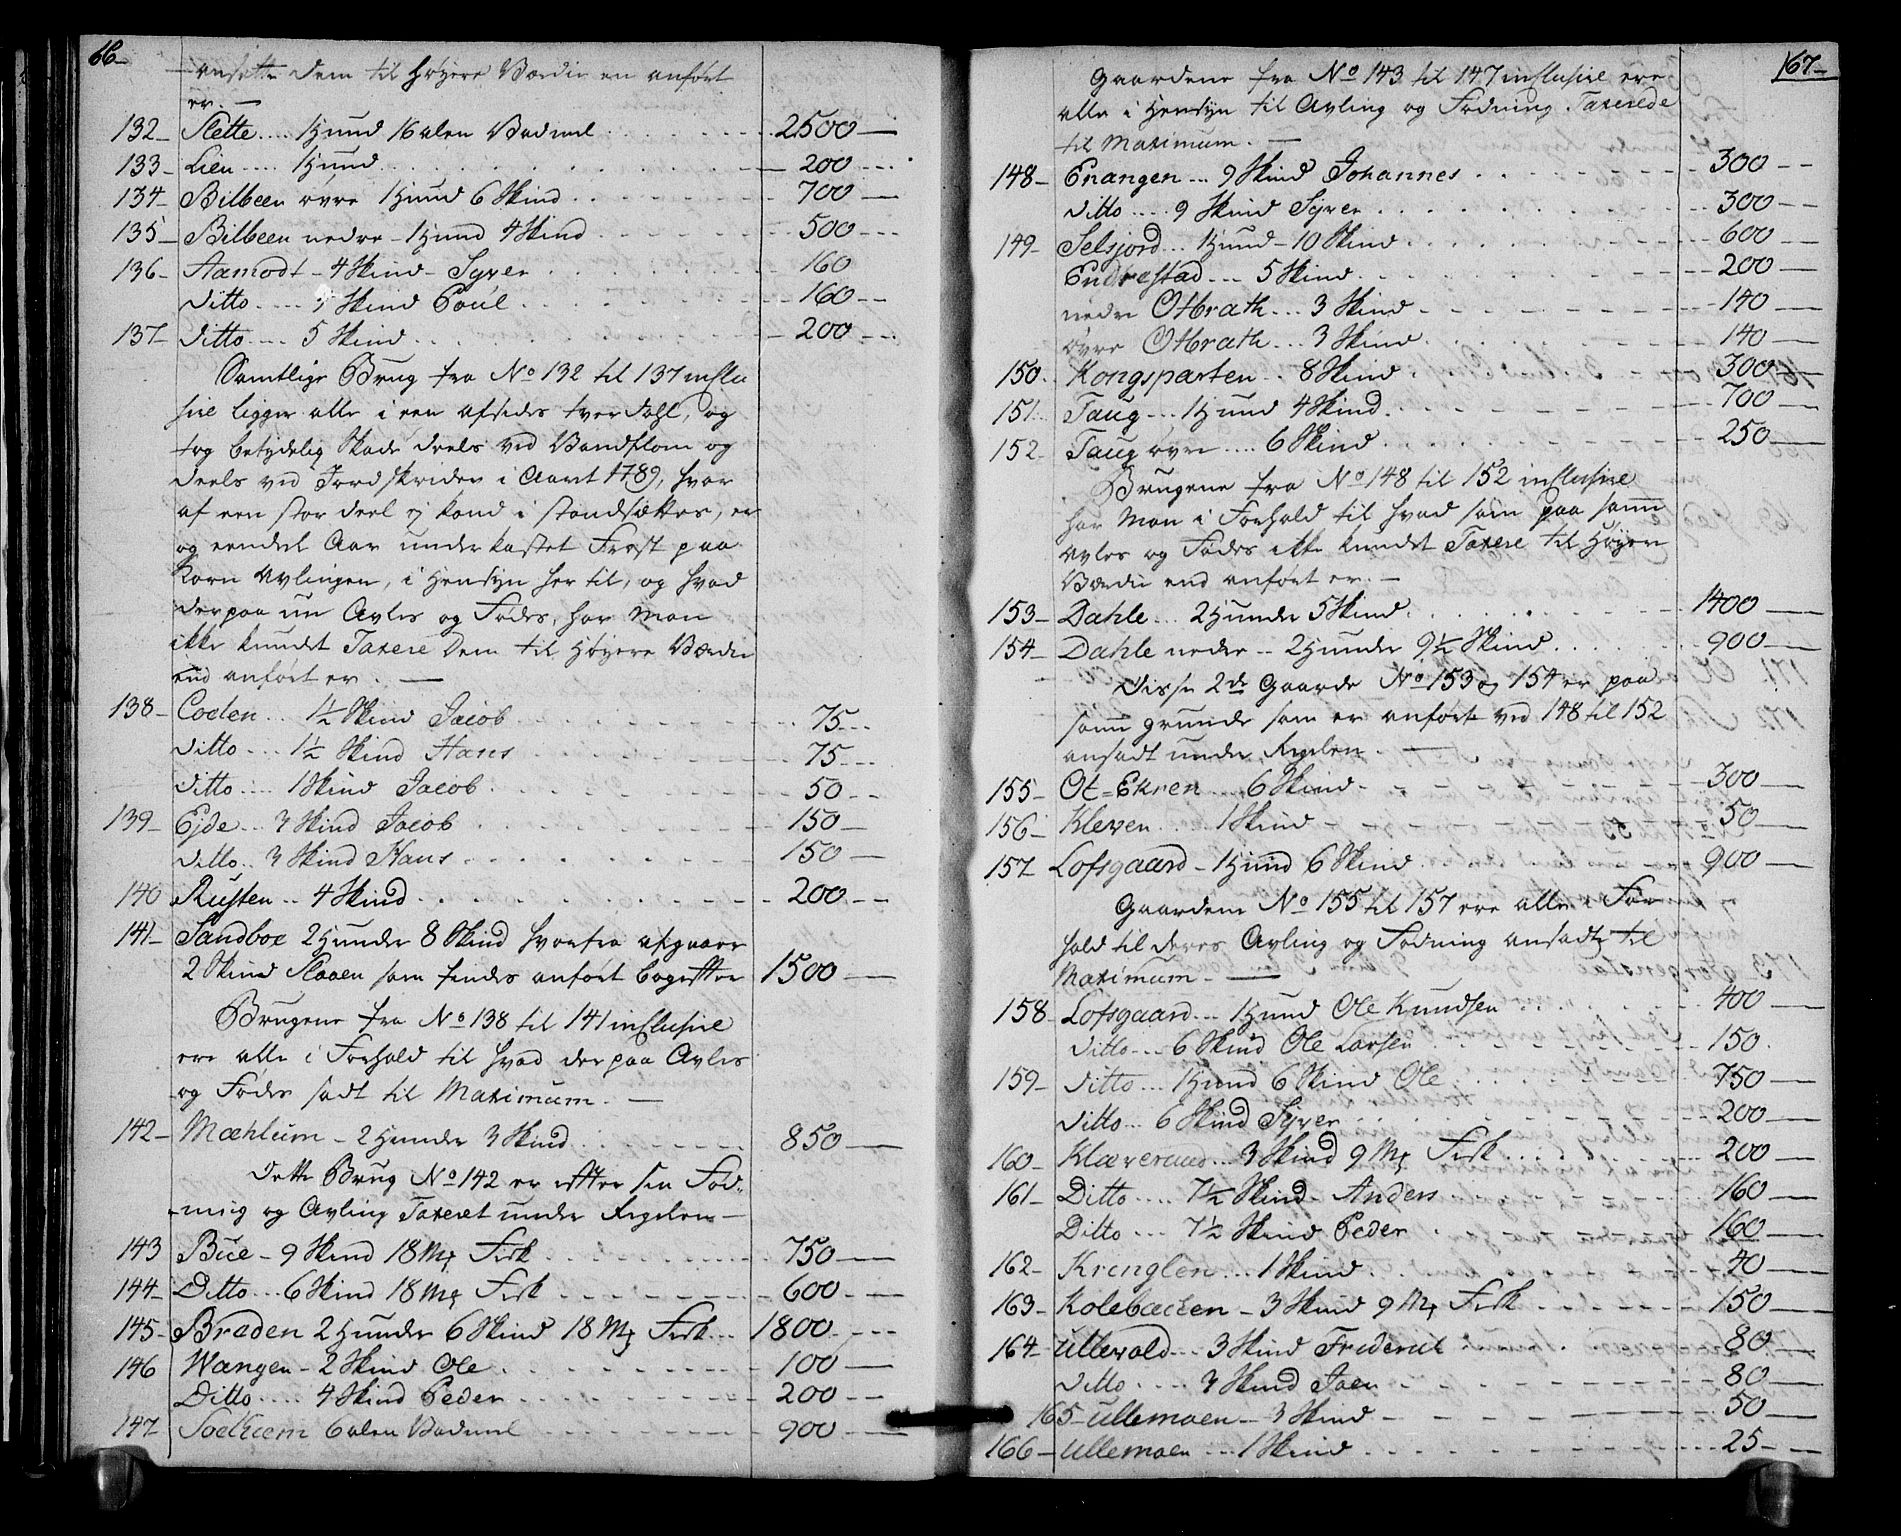 66-
ansætte dem til høyere Værdie en anført
er. —
132- Slette.... 1 Hund 16 alen Vadmel 2500 —
133- Lien.... 1 Hund 200 ---
134- Bilbeen øvre 1 Hund 6 Skind 700 —
135- Bilbeen nedre - 1 Hund 4 Skind 500 ---
136- Aamodt - 4 Skind - Syver 160
Ditto.... Skind Poul 160 --
137- Ditto.... 5 Skind 200 ---
Samtlige Brug fra No 132 til 137 inclu
sive ligger alle i een afsides tver Dahl, og
tog betydelig Skade deels ved Vandflom og
deels ved Jordskriden i Aaret 1789, hvor
af een stor deel ej kand i standsættes, er
og eendeel Aar underkastet Frost paa
Korn Avlingen, i Hensyn her til, og hvad
derpaa nu Avles og Fødes, har Man
ikke kundet Taxere Dem til Høyere Værdie
end anført er. —
138- Coden... 1½ Skind Jacob 75 ---
Ditto... 1½ Skind Hans 75 ---
Ditto... 1 Skind Jacob 50 --
139- Ejde... 3 Skind Jacob 150 —
Ditto.. 3 Skind Hans 150 —
140 Rusten.. 4 Skind 200 --
141- Sandboe 2 Hunder 8 Skind hvorfra afgaaer
2 Skind Slaaen som findes anført bagefter 1500 —
Brugene fra No 138 til 141 inclusive
ere alle i Forhold til hvad derpaa Avles
og Fødes sadt til Maximum. —
142- Mæhlum - 2 Hunder 3 Skind 850 —
Dette Brug No 142 er efter sin Fød-
ning og Avling Taxeret under Regelen —
143 Bue - 9 Skind 18 Mk Fisk 750 —
144- Ditto... 6 Skind 18 Mk Fisk 600 —
145- Braden 2 Hunder 6 Skind 18 Mk Fisk 1800 ---
146 Wangen - 2 Skind Ole 100 —
Ditto.... 4 Skind Peder 200 --
147 Solhiem 6 alen Vadmel 900 —
167-
Gaardene fra No 143 til 147 inclusive ere
alle i Hensyn til Avling og Fødning Taxerede
til Maximum. —
148- Enangen... 9 Skind Johannes 300 --
Ditto.... 9 Skind Syver 300 --
149- Selsjord... 1 Hund - 10 Skind 600 —
Endrestad... 5 Skind 200 —
nedre Otbrath... 3 Skind 140 —
øvre Otbrath... 3 Skind 140 —
150. Kongsparten.. 8 Skind 300 —
151. Taug... 1 Hund 4 Skind 700 —
152. Taug øvre.... 6 Skind 250 —
Brugene fra No 148 til 152 inclusive
har Man i Forhold til hvad som paa samme
Avles og Fødes ikke kundet Taxere til Høyere
Værdie end anført er. —
153- Dahle... 2 Hunder 5 Skind 1400 —
154- Dahle nedre -- 2 Hunder 9½ Skind 900 —
Disse 2de Gaarde No 153 og 154 er paa
samme grunde som er anført ved 148 til 152
ansadt under Regelen. —
155- Ot=Ekren.... 6 Skind 300 —
156- Kleven... 1 Skind 50 —
157 Lofsgaard - 1 Hund 6 Skind 900 —
Gaardene No 155 til 157 ere alle i For
hold til deres Avling og Fødning ansadte til
Maximum - —
158- Lofsgaard... 1 Hund Ole Knudsen 400 —
Ditto... 6 Skind Ole Larsen 150.
159- Ditto... 1 Hund 6 Skind Ole 750 —
Ditto.. 6 Skind Syver 200 —
160- Klæverud... 3 Skind 9 Mk Fisk 200 —
161- Ditto.... 7½ Skind - Anders 160 —
Ditto... 7½ Skind Peder 160 —
162- Kringlen... 1 Skind 40 —
163- Kolebacken - 3 Skind 9 Mk Fisk 150 —
164- Ullevold... 3 Skind Friderik 80 —
Ditto.... 3 Skind Joen 80 —
165- Ullemoen - 3 Skind 50 —
166- Ullemoen... 1 Skind 25 - —